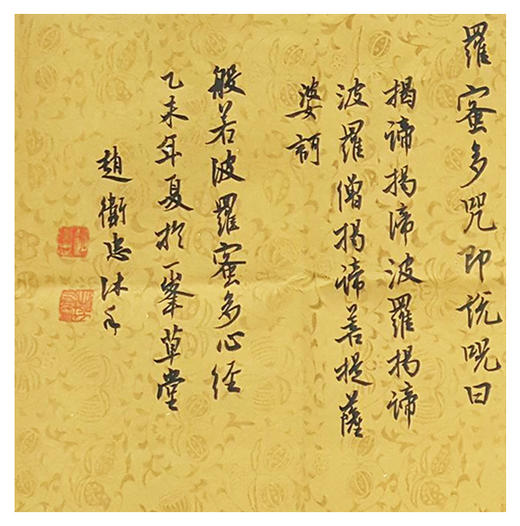 羅蜜多咒即說咒曰
揭諦揭諦波羅揭諦
波羅僧揭諦菩提薩
婆訶
般若波羅蜜多心經
乙未年夏於一峯草堂
趙衛忠沐手